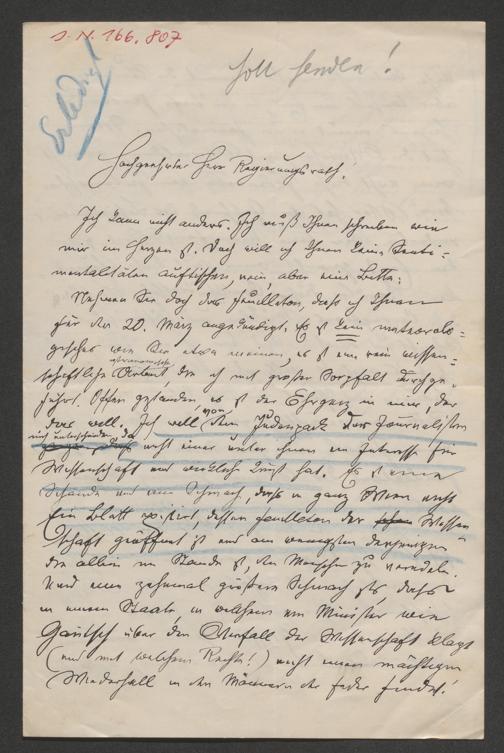 J. N. 166.807
soll senden!
Erledigt
Hochgeehrter Herr Regierungsrath!
Ich kann nicht anders. Ich muß Ihnen schreiben wie
mir im Herzen ist. Doch will ich Ihnen keine Senti-
mentalitäten auftischen, nein, aber eine Bitte:
Nehmen Sie doch das Feuilleton, daß ich Ihnen
für den 20. März angekündigt. Es ist kein meteorolo-
gisches wie Sie etwa meinen, es ist eine rein wissen-
schaftliche astronomische Arbeit, die ich mit großer Sorgfalt durchge-
führt. Offen gestanden, es ist der Ehrgeiz in mir, der
das will. Ich will von dem Judenpack der Journalisten
mich unterscheiden, da
nicht einer unter ihnen ein Interesse für
Wissenschaft und wirkliche Kunst hat. Es ist eine
Schande und eine Schmach, daß in ganz Wien nicht
Ein Blatt existirt, dessen Feuilleton der Wissen
schaft geöffnet ist und am wenigsten derjenigen
die allein im Stande ist, den Menschen zu veredeln.
Und eine zehnmal größere Schmach ists, dass
in einem Staate, in welchem ein Minister wie
Gautsch über den Verfall der Wissenschaft klagt
(und mit welchem Rechte!) nicht einen mächtigen
Wiederhall in den Männern der Feder findet!